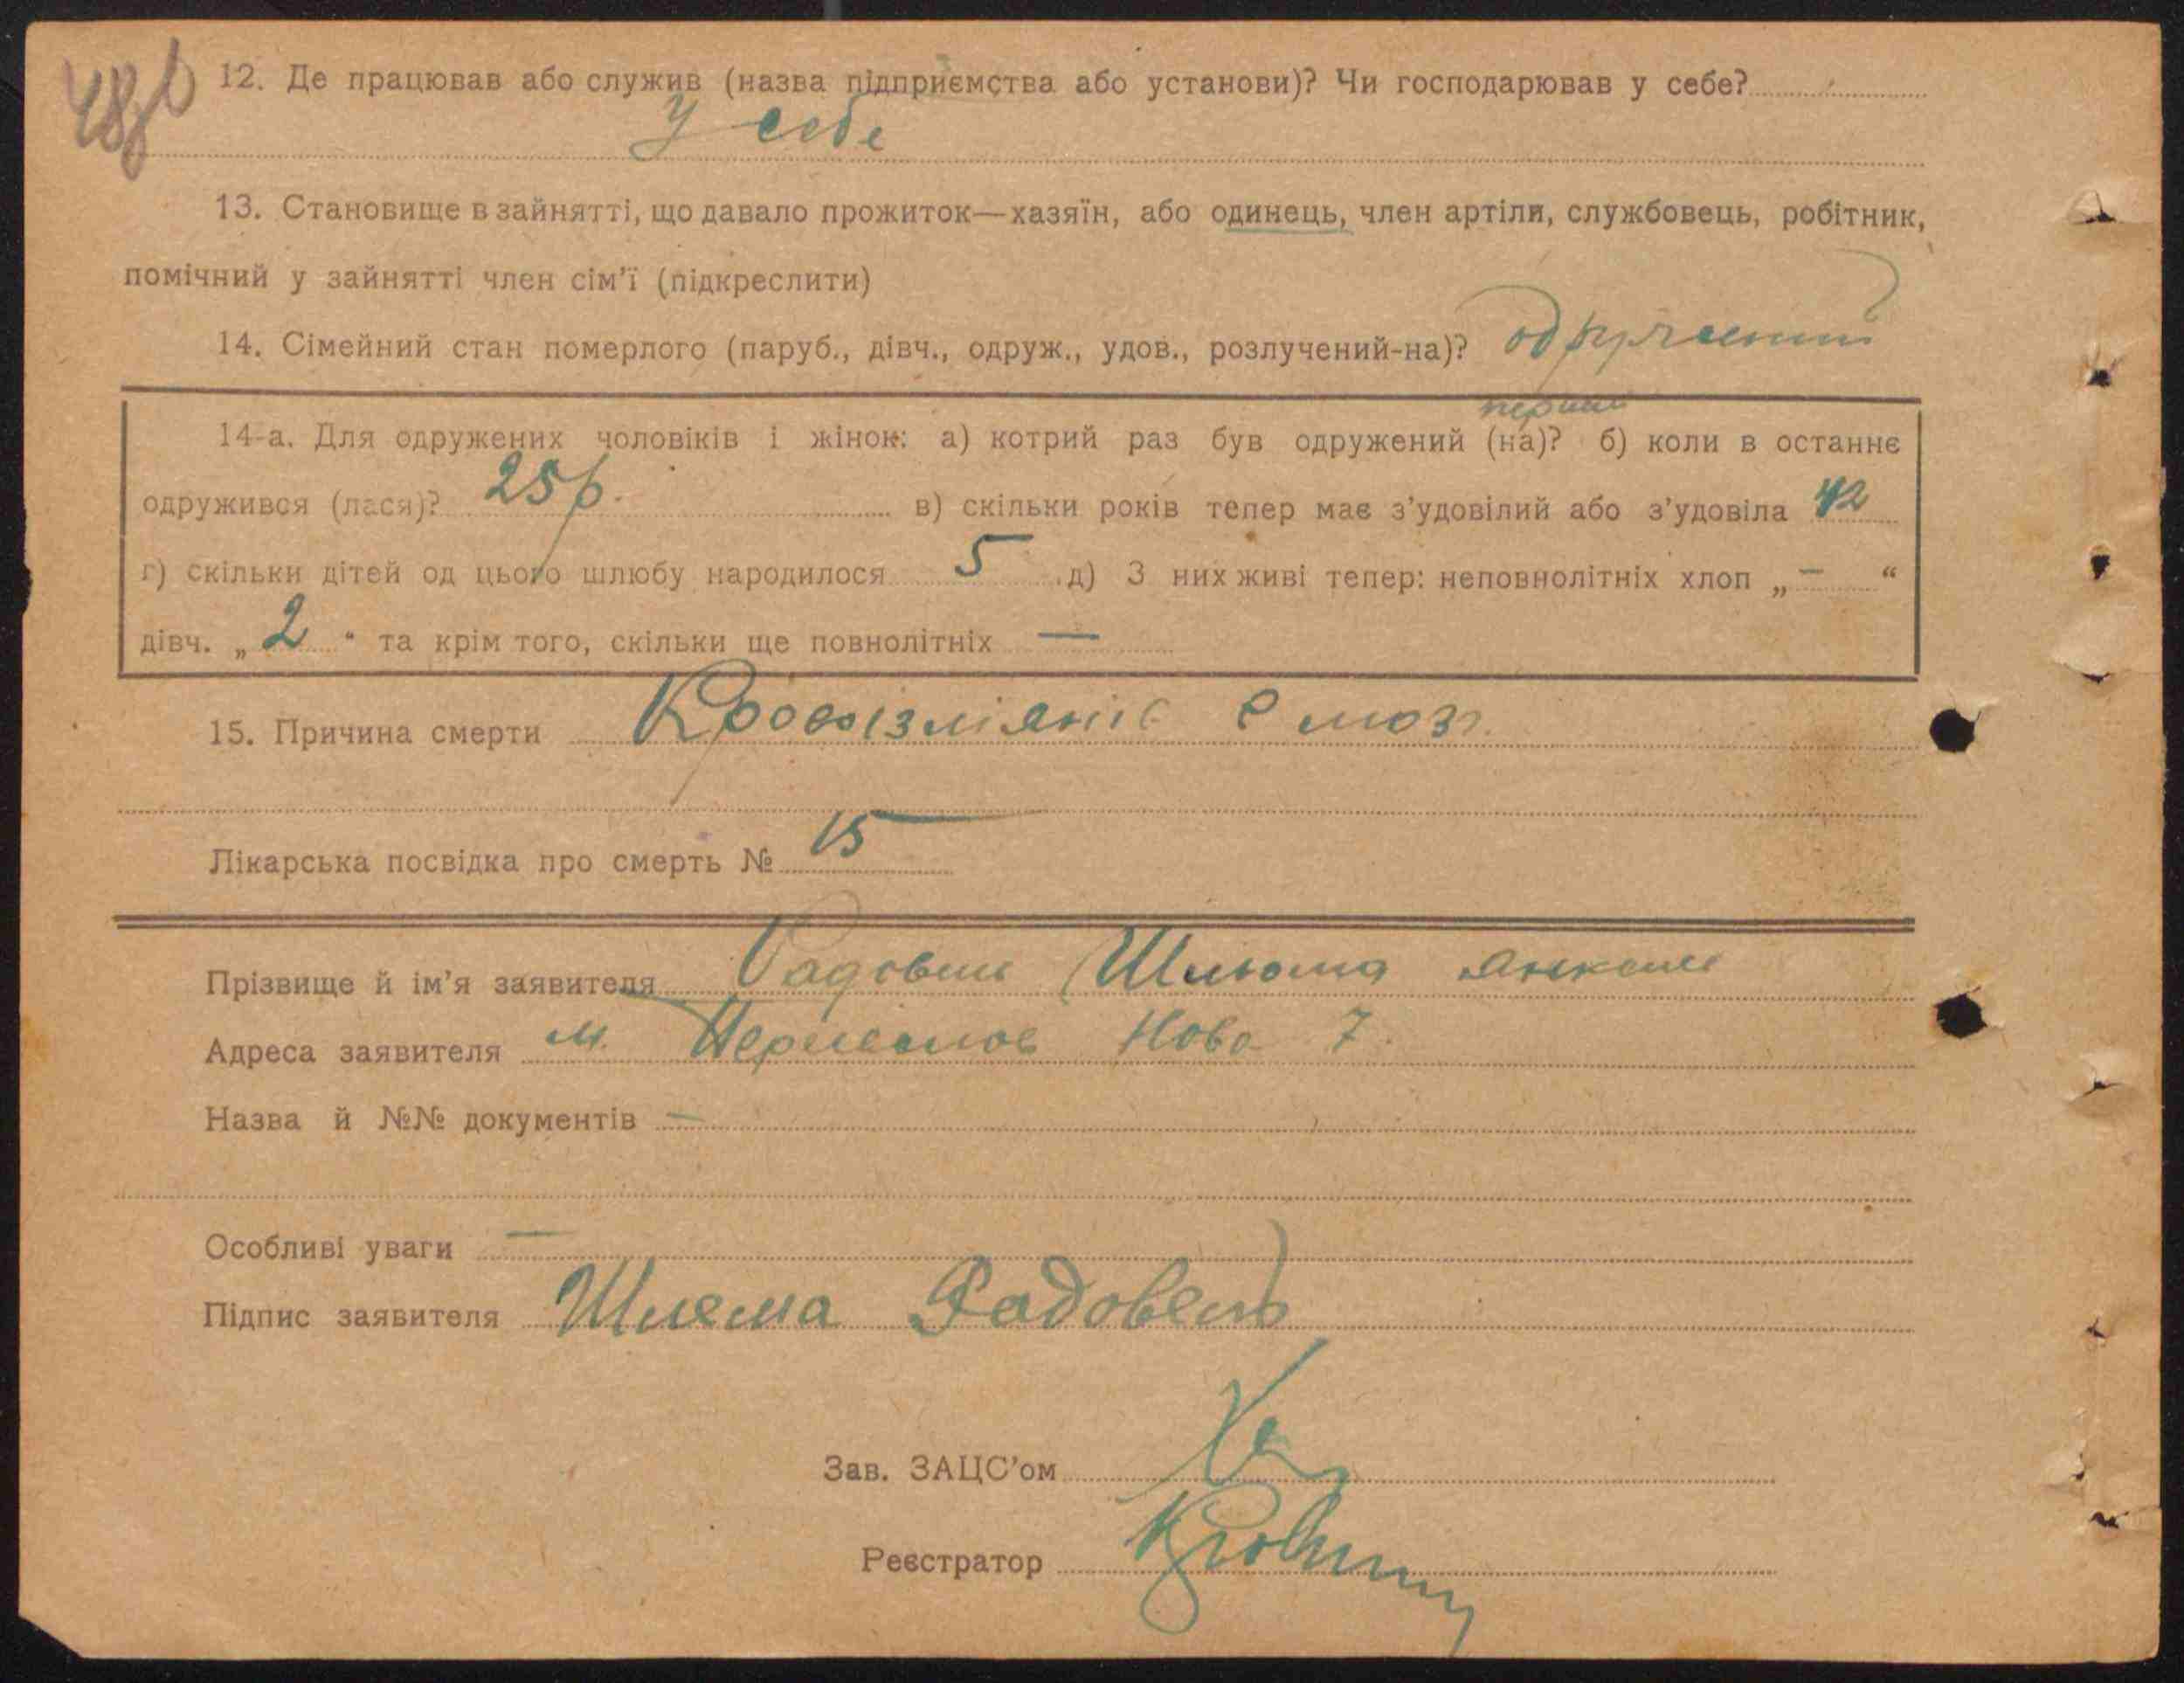 12. Де працював або служив (назва підприємства або установи)? Чи господарював у себе?
у себе
13. Становище в зайнятті, що давало прожиток—хазяїн, або одинець, член артіли, службовець, робітник,
помічний у зайнятті член сім'ї (підкреслити)
14. Сімейний стан померлого (паруб., дівч., одруж., удов., розлучений-на)? одружений
перший
14-а. Для одружених чоловіків і жінок: а) котрий раз був одружений (на)? б) коли в останнє
одружився (лася)? 25 р. в) скільки років тепер має з'удовілий або з'удовіла 42
г) скільки дітей од цього шлюбу народилося 5 д) З них живі тепер: неповнолітніх хлоп „ — “
дівч. „ 2 “ та крім того, скільки ще повнолітніх —
15. Причина смерти Кровоізліяніє в мозг.
Лікарська посвідка про смерть № 15
Прізвище й ім'я заявителя Шльома
Адреса заявителя м. Нова 7
Назва й №№ документів —
Особливі уваги —
Підпис заявителя Шлема Радовель
Зав. ЗАЦС'ом
Реєстратор